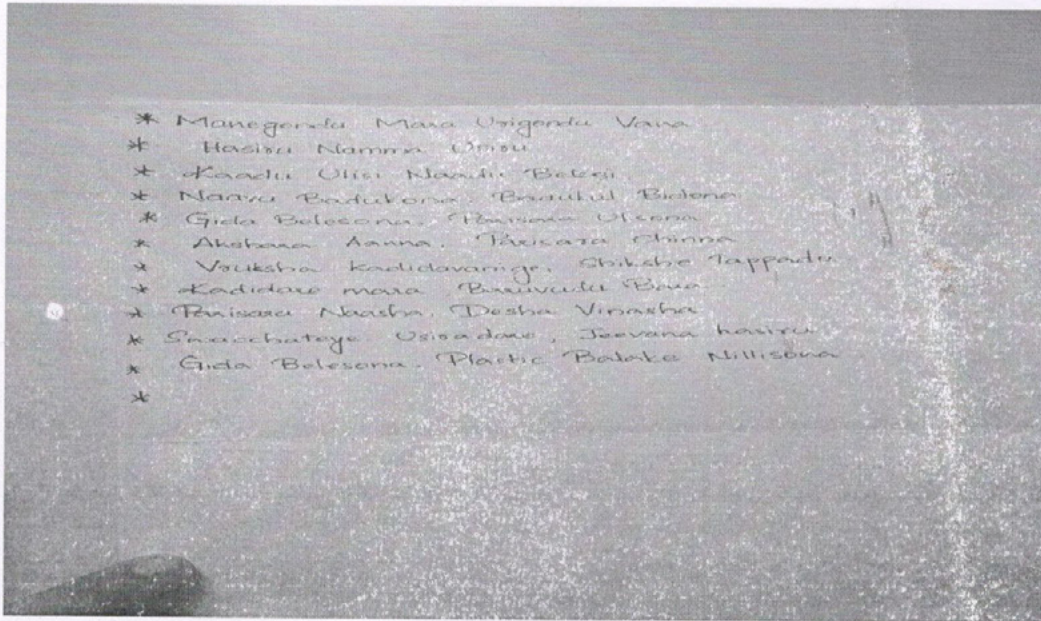 * Manegondu Mara Urigondu Vana
* Hasiru Namma Usiru
* Kaadu Ulisi Naadu Belesi
* Naavu Badukona, Badukul Bidona
* Gida Belesona, Parisara Ulsona
* Akshara Aanna, Parisara Chinna
* Vruksha Kadidavanige, Shikshe Tappadu
* Kadidare mara Baruvudu Bara
* Parisara Naasha, Desha Vinasha
* Swacchateye Usiradare, Jeevana hasiru
* Gida Belesona, Plastic Balake Nillisona
*